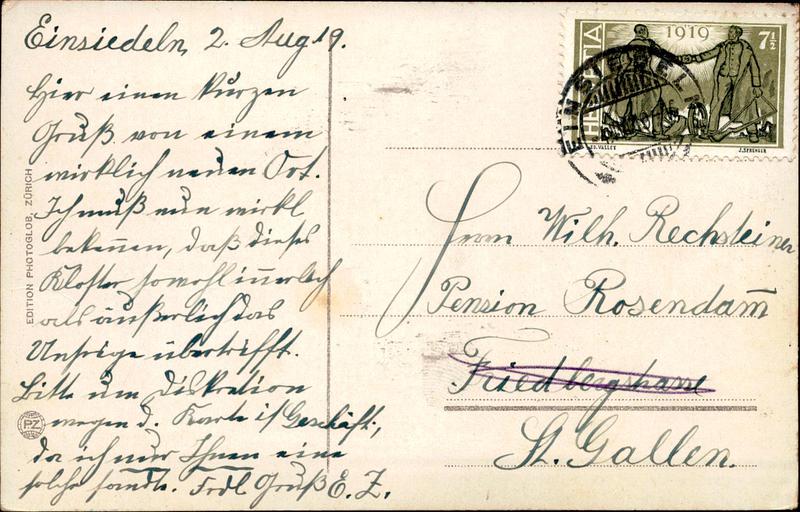 Einsiedeln, 2. Aug 19.
Hier einen kurzen
Gruß von einem
wirklich neuen Ort.
Ich muß nun wirkl
bekennen, daß dieses
Kloster sowohl innerlich
als äußerlich das
übertrifft.
Bitte um Diskretion
wegen d. Karte i/ Geschäft,
da ich nur Ihnen eine
solche sandte. Frdl Gruß E. Z.
EDITION PHOTOGLOB, ZÜRICH
PZ
HELVETIA
1919
7½
ED. VALLET
J. SPRENGER
EINSIEDELN
Herrn Wilh. Rechsteiner
Pension Rosendam̄
Friedbergstrasse
St. Gallen.